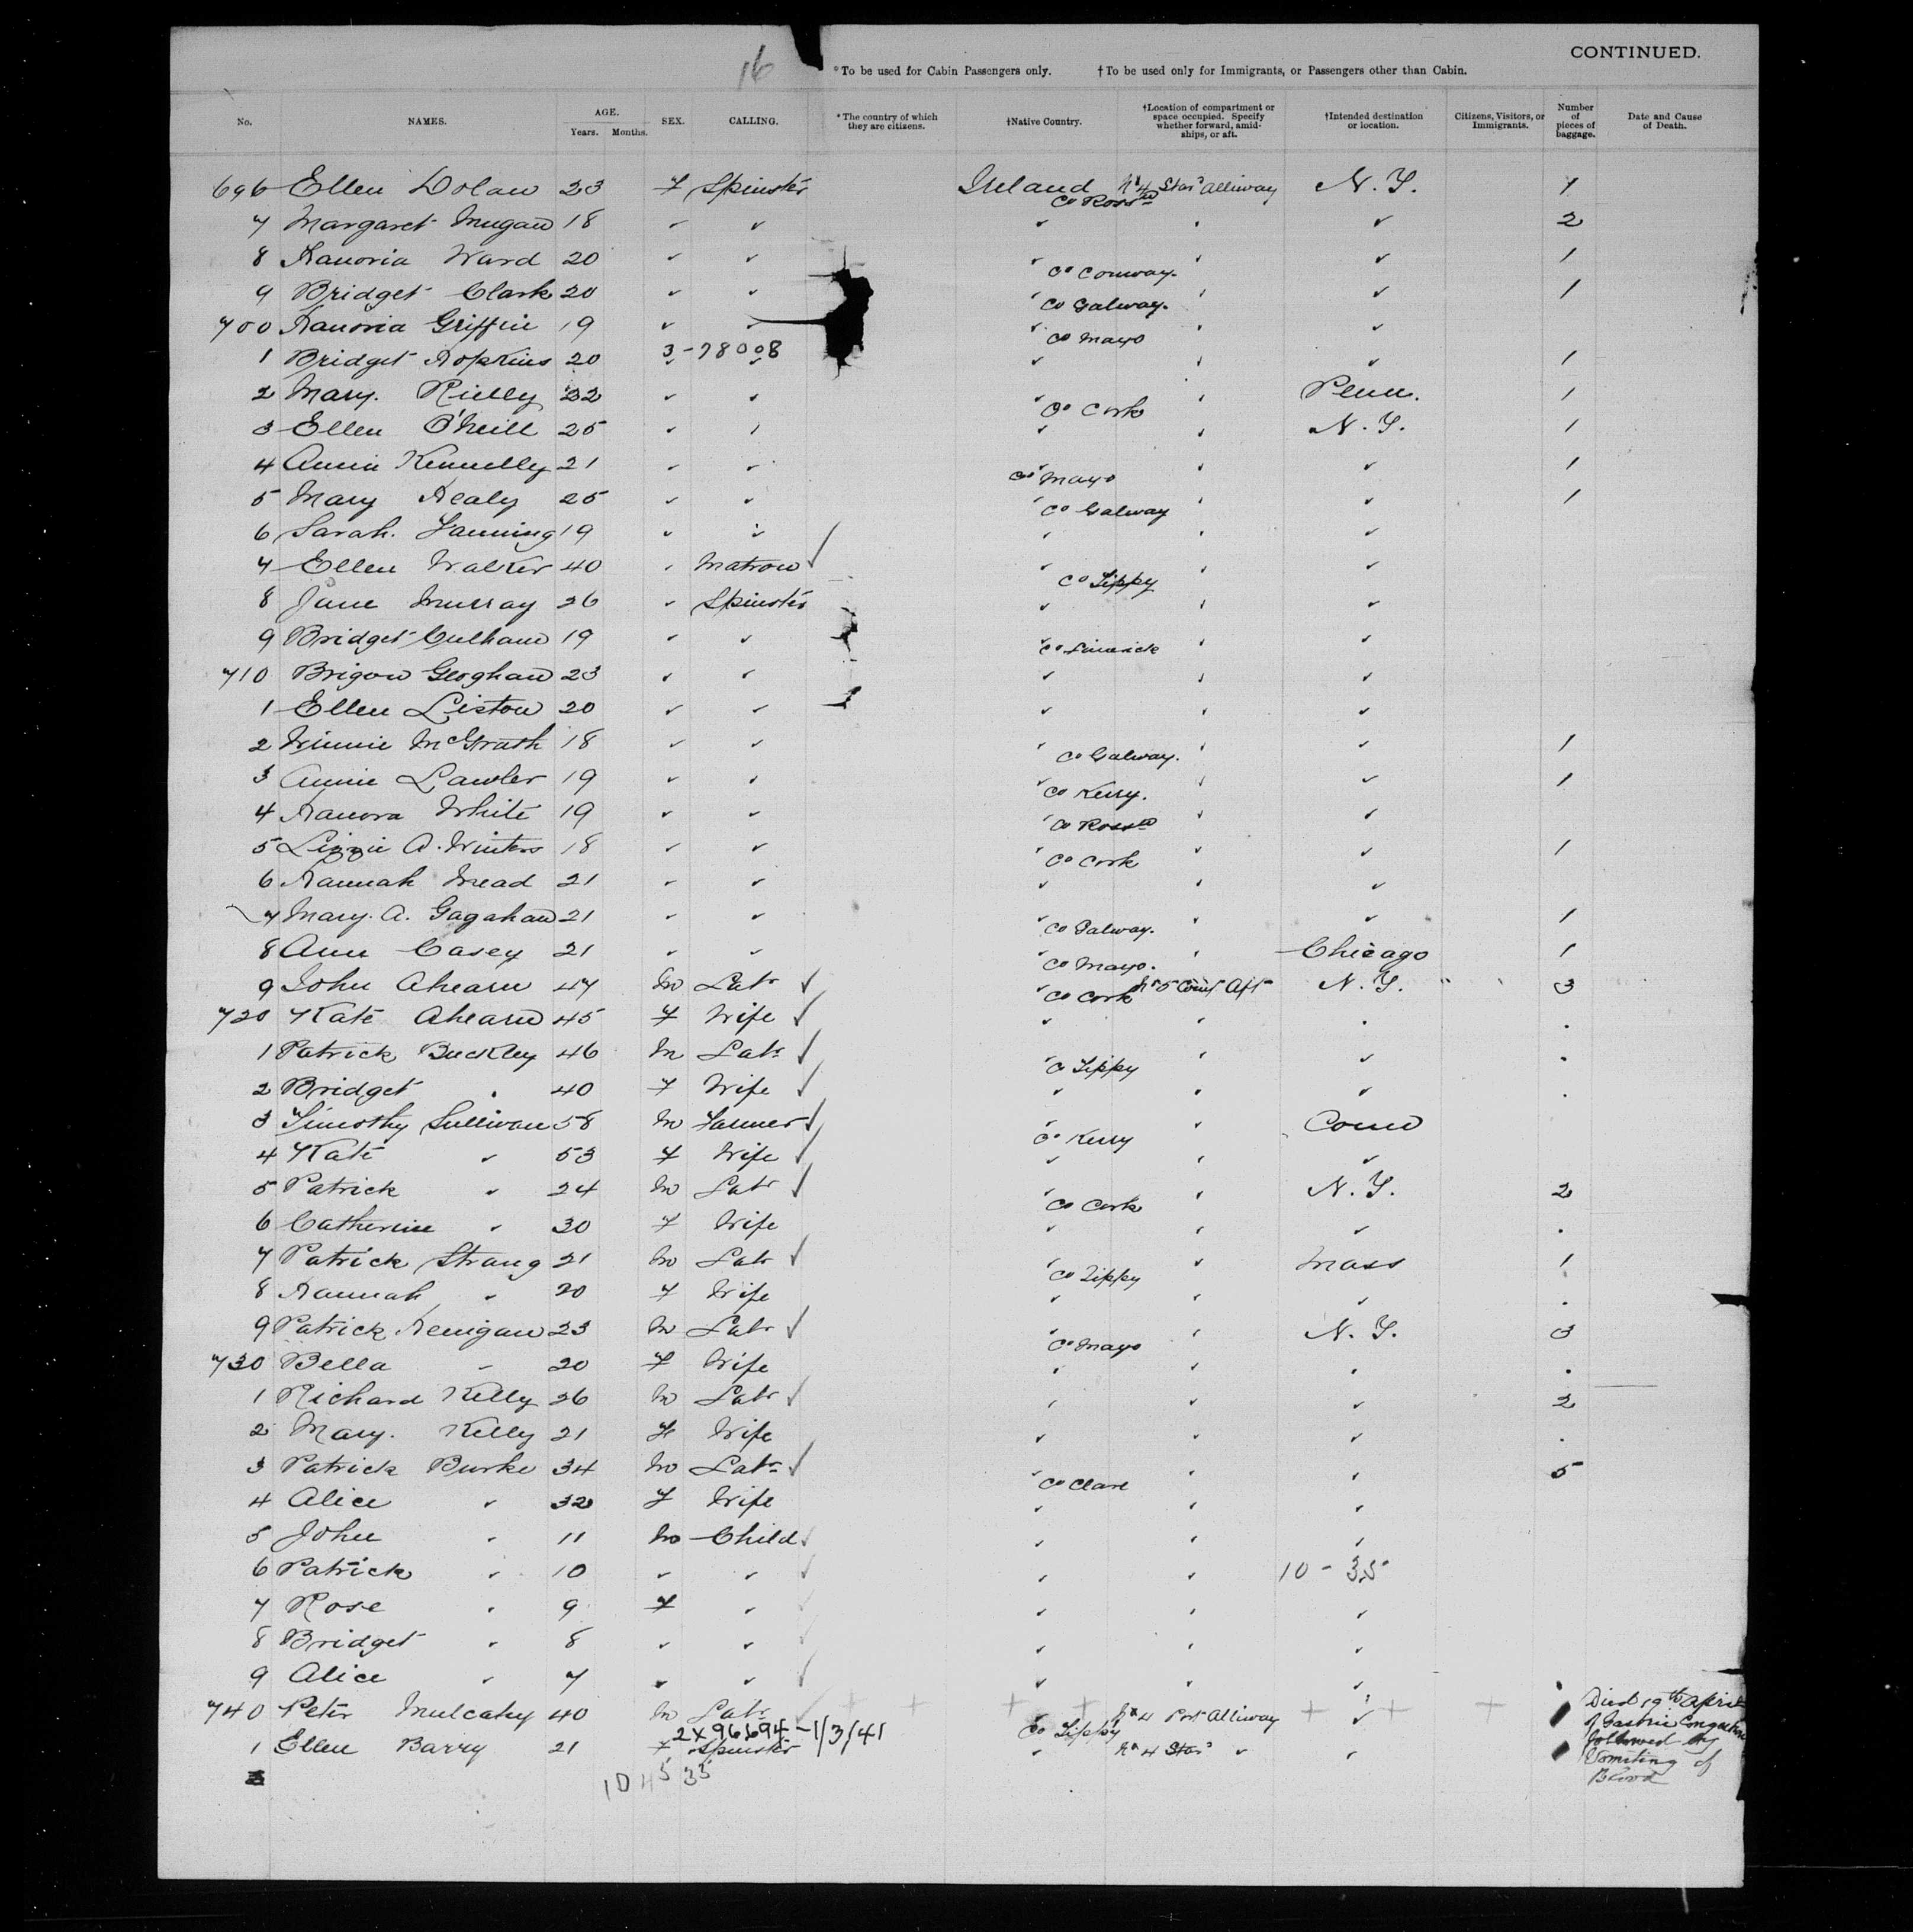 16
CONTINUED.
*To be used for Cabin Passengers only. †To be used only for Immigrants, or Passengers other than Cabin.
No. NAMES. AGE. Years. Months. SEX. CALLING. *The country of which they are citizens. †Native Country. †Location of compartment or space occupied. Specify whether forward, amidships, or aft. †Intended destination or location. Citizens, Visitors, or Immigrants. Number of pieces of baggage. Date and Cause of Death.
696 Ellen Dolan 23 F Spinster Ireland Co Ross No 4 Star Alliway N.Y. 1
7 Margaret Mugan 18 ✓ ✓ ✓ ✓ ✓ 2
8 Hanoria Ward 20 ✓ ✓ ✓ Co Conway. ✓ ✓ 1
9 Bridget Clark 20 ✓ ✓ ✓ Co Galway. ✓ ✓ 1
700 Hanoria Griffin 19 ✓ ✓ ✓ Co Mayo ✓ ✓
1 Bridget Hopkins 20 3-78008 ✓ ✓ ✓ ✓ ✓ 1
2 Mary. Rielly 22 ✓ ✓ ✓ Co Cork ✓ Penn. 1
3 Ellen O'Neill 25 ✓ ✓ ✓ ✓ N.Y. 1
4 Annie Kennelly 21 ✓ ✓ ✓ Co Mayo ✓ ✓ 1
5 Mary Healy 25 ✓ ✓ ✓ Co Galway ✓ ✓ 1
6 Sarah. Fanning 19 ✓ ✓ ✓ ✓ ✓
7 Ellen Walker 40 ✓ Matron ✓ Co Tippy ✓ ✓
8 Jane Murray 26 ✓ Spinster ✓ ✓ ✓
9 Bridget Culhane 19 ✓ ✓ ✓ Co Limerick ✓ ✓
710 Geoghan 23 ✓ ✓ ✓ ✓ ✓
1 Ellen Liston 20 ✓ ✓ ✓ ✓ ✓
2 Winnie McGrath 18 ✓ ✓ ✓ Co Galway. ✓ ✓ 1
3 Annie Lawler 19 ✓ ✓ ✓ Co Kerry. ✓ ✓ 1
4 Hanora White 19 ✓ ✓ ✓ Co Ross ✓ ✓
5 Lizzie A. Winters 18 ✓ ✓ ✓ Co Cork ✓ ✓ 1
6 Hannah Mead 21 ✓ ✓ ✓ ✓ ✓
7 Mary. A. Gagahan 21 ✓ ✓ ✓ Co Galway. ✓ ✓ 1
8 Ann Casey 21 ✓ ✓ ✓ Co Mayo. ✓ Chicago 1
9 John Ahearn 47 M Labr ✓ Co Cork No 5 Comt Aft N.Y. " 3
720 Kate Ahearn 45 F Wife ✓ ✓ ✓ .
1 Patrick Buckley 46 M Labr ✓ Co Tippy ✓ ✓ .
2 Bridget " 40 F Wife ✓ ✓ ✓ ✓ .
3 Timothy Sullivan 58 M Farmer ✓ Co Kerry ✓ Conn
4 Kate " 53 F Wife ✓ ✓ ✓ ✓
5 Patrick " 24 M Labr ✓ Co Cork ✓ N.Y. 2
6 Catherine " 30 F Wife ✓ ✓ ✓ .
7 Patrick Strang 21 M Labr ✓ Co Tippy ✓ Mass 1
8 Hannah " 20 F Wife ✓ ✓ ✓ .
9 Patrick Henigan 23 M Labr ✓ Co Mayo ✓ N.Y. 3
730 Bella " 20 F Wife ✓ ✓ ✓ .
1 Richard Kelly 26 M Labr ✓ ✓ ✓ ✓ 2
2 Mary. Kelly 21 F Wife ✓ ✓ ✓ .
3 Patrick Burke 34 M Labr ✓ Co Clare ✓ ✓ 5
4 Alice " 32 F Wife ✓ ✓ ✓
5 John " 11 M Child ✓ ✓ ✓ ✓
6 Patrick " 10 ✓ ✓ ✓ ✓ ✓ 10 - 35
7 Rose " 9 F ✓ ✓ ✓ ✓
8 Bridget " 8 ✓ ✓ ✓ ✓ ✓
9 Alice " 7 ✓ ✓ ✓ ✓ ✓
740 Peter Mulcahy 40 M Labr Co Tippy No 4 Port Alliway ✓ Died 19th April of Gastric Congestion followed by Vomiting of Blood
2x96694-1/3/41
1 Ellen Barry 21 F Spinster ✓ No 4 Star ✓ ✓